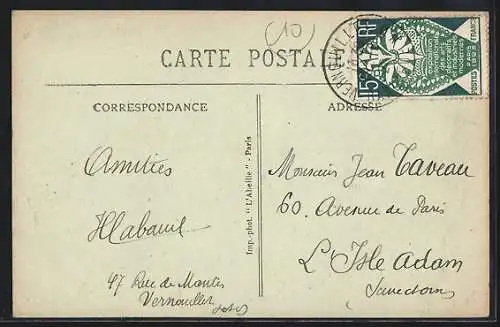 (10)
CARTE POSTALE
CORRESPONDANCE
ADRESSE
Amitiés
47 Rue de Mantes
Vernouillet
Imp.-phot. "L'Abeille" - Paris
Monsieur Jean Taveau
60. Avenue de Paris
L'Isle Adam
VERNOUILLET
15c
RF
POSTES FRANCE